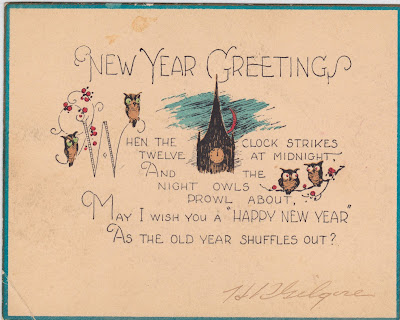 NEW YEAR GREETINGS
WHEN THE CLOCK STRIKES
TWELVE AT MIDNIGHT,
AND THE
NIGHT OWLS
PROWL ABOUT,
MAY I WISH YOU A "HAPPY NEW YEAR"
AS THE OLD YEAR SHUFFLES OUT?